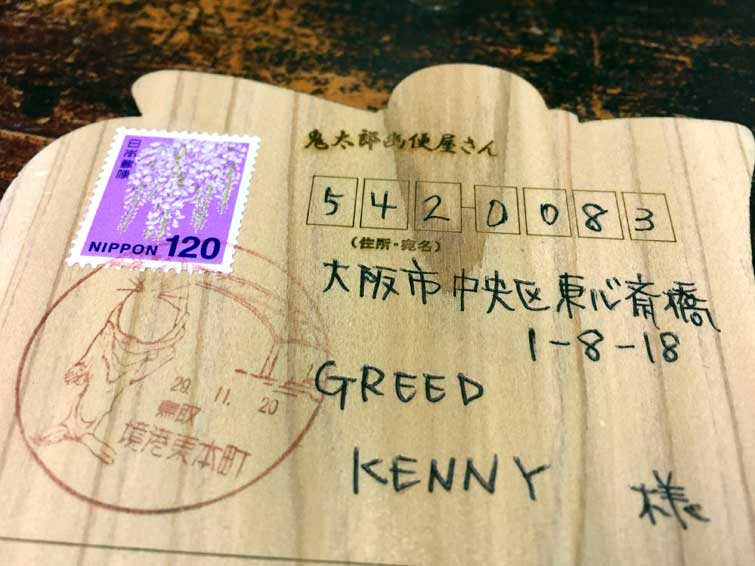 日本郵便
NIPPON 120
鬼太郎幽便屋さん
5420083
(住所・宛名)
大阪市中央区東心斎橋
1-8-18
GREED
KENNY 様
29.11.20
鳥取
境港東本町